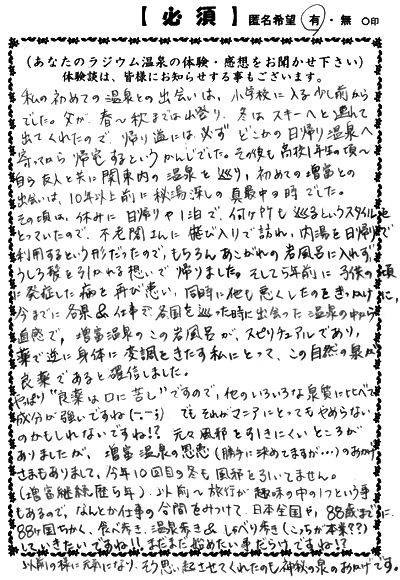 【必須】 匿名希望 有・無 ○印
(あなたのラジウム温泉の体験・感想をお聞かせ下さい)
体験談は、皆様にお知らせする事もございます。
私の初めての温泉との出会いは、小学校に入る少し前から
でした。父が、春〜秋までは山登り、冬はスキーへと連れて
出てくれたので、帰り道には必ず どこかの日帰り温泉へ
寄ってから 帰宅するというかんじでした。その後も高校1年生の頃〜
自ら友人と共に関東内の温泉を巡り、初めての増富との
出会いは、10年以上前に秘湯探しの真最中の時でした。
その頃は、休みに日帰りや1泊で、何ヶ所も 巡るというスタイルを
とっていたので、不老閣さんに 飛び入りで訪れ、内湯を日帰りで
利用するという形だったので、もちろんあこがれの岩風呂に入れず、
うしろ髪を引かれる想いで 帰りました。そして5年前に 子供の頃
に発症した病を再び患い、同時に他も悪くしたのをきっかけに、
今までに各県&仕事で各国を巡った時に出会った温泉の中から
直感で、増富温泉のこの岩風呂が、スピリチュアルであり、
薬で逆に身体に変調をきたす私にとって、この自然の泉が
良薬であると確信しました。
やっぱり"良薬は口に苦し"ですので、他のいろいろな泉質に比べて
成分が強いですね でもそれがマニアにとってもやめらない
のかもしれないですね!? 元々風邪を引きにくいところが
ありましたが、増富温泉の恩恵(勝手に決めてますが…)のおかげ
さまもありまして、今年10回目の冬も風邪を引いてません。
(増富継続歴5年) 以前〜旅行が趣味の中の1つという事
もあるので、なんとか仕事の合間をみつけて、日本全国や、88歳までに
88ヶ国ちかく、食べ歩き、温泉歩き&しゃべり歩き(こっちが本業??)
していきたいですね!!まだまだ始めたい事だらけですね!?
以前の様に元気になり、そう思い起させてくれたのも神秘の泉のおかげです。